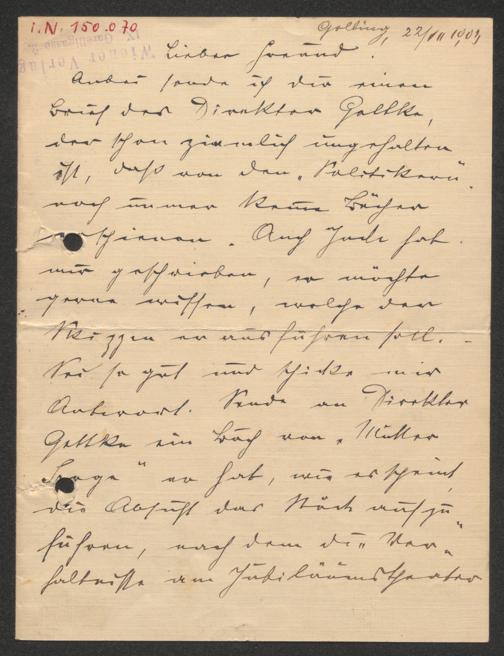 I.N. 150.070
Golling, 22/VII 1904
Wiener Verlag
Lieber Freund.
Anbei sende ich dir einen
Brief des Direktor Gettke,
der schon ziemlich ungehalten
ist, daß von den „Politikern"
noch immer keine Bücher
erschienen. Auch Jude hat
mir geschrieben, er möchte
gerne wissen, welche der
Skizzen er ausführen soll. –
Sei so gut und schicke mir
Antwort. Sende an Direktor
Gettke ein Buch von „Mutter
Sorge" er hat, wie es scheint,
die Absicht das Stück aufzu„
führen, nach dem die Ver„
hältnisse am Jubiläumstheater